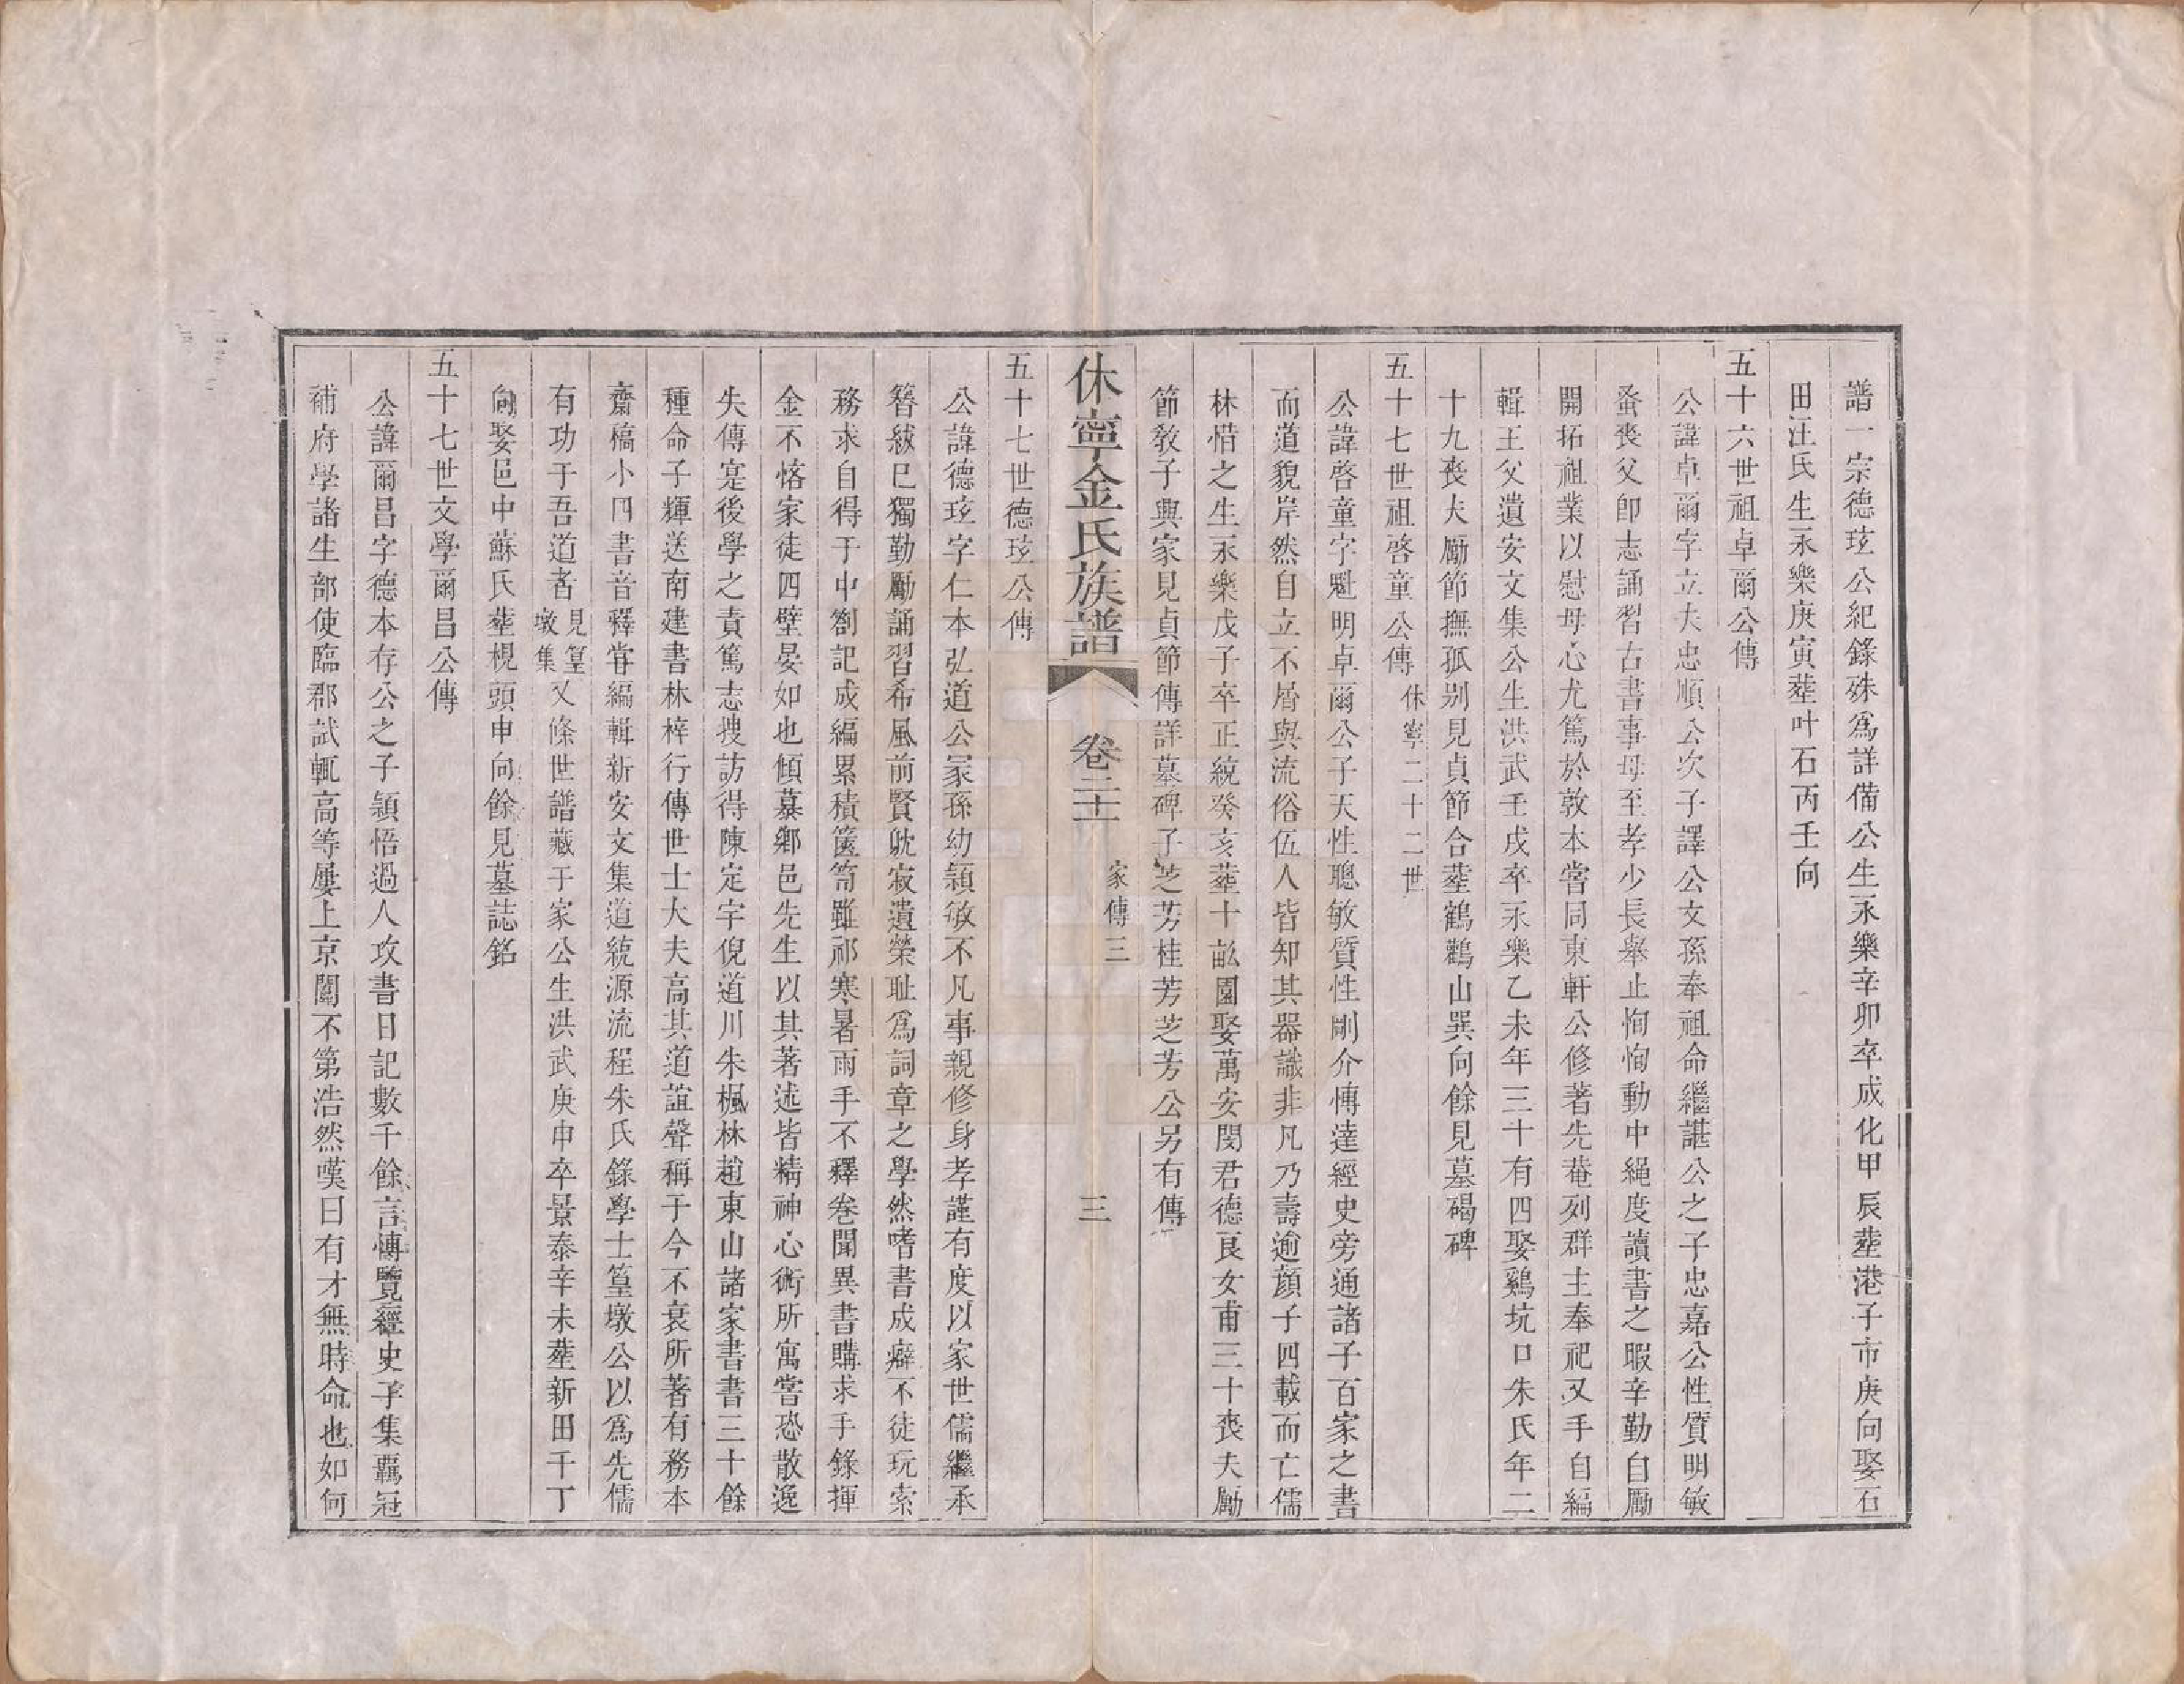 譜一宗德玹公紀錄殊為詳備公生永樂辛卯卒成化甲辰塟港子市庚向娶石
田汪氏生永樂庚寅塟叶石丙壬向
五十六世祖卓爾公傳
公諱卓爾字立夫忠順公次子譯公文孫奉祖命繼諶公之子忠嘉公性質明敏
蚤喪父卽志誦習古書事母至孝少長舉止恂恂動中繩度讀書之暇辛勤自勵
開拓祖業以慰母心尤篤於敦本嘗同東軒公修著先菴列群主奉祀又手自編
輯王父遺安文集公生洪武壬戌卒永樂乙未年三十有四娶鷄坑口朱氏年二
十九喪夫勵節撫孤别見貞節合塟鶴鸛山巽向餘見墓碣碑
五十七世祖啓童公傳 休寧二十二世
公諱啓童字魁明卓爾公子天性聰敏質性剛介愽達經史旁通諸子百家之書
而道貌岸然自立不屑與流俗伍人皆知其器識非凡乃壽逾顔子四載而亡儒
林惜之生永樂戊子卒正統癸亥塟十畝園娶萬安閔君德良女甫三十喪夫勵
節教子興家見貞節傳詳墓碑子芝芳桂芳芝芳公另有傳
休寧金氏族譜 卷二十 家傳三 三
五十七世德玹公傳
公諱德玹字仁本弘道公冡孫幼穎敏不凡事親修身孝謹有度以家世儒繼承
簪紱已獨勤勵誦習希風前賢躭寂遺榮耻為詞章之學然嗜書成癖不徒玩索
務求自得于中劄記成編累積篋笥雖祁寒暑雨手不釋卷聞異書購求手錄揮
金不悋家徒四壁晏如也傾慕鄉邑先生以其著述皆精神心術所寓嘗恐散逸
失傳寔後學之責篤志搜訪得陳定宇倪道川朱楓林趙東山諸家書書三十餘
種命子輝送南建書林梓行傳世士大夫高其道誼聲稱于今不衰所著有務本
齋稿小四書音釋嘗編輯新安文集道統源流程朱氏錄學士篁墩公以為先儒
有功于吾道者 見篁墩集 又條世譜藏于家公生洪武庚申卒景泰辛未塟新田千丁
向娶邑中蘇氏塟梘頭申向餘見墓誌銘
五十七世文學爾昌公傳
公諱爾昌字德本存公之子穎悟過人攻書日記數千餘言愽覽經史子集羈冠
補府學諸生部使臨郡試輒高等屢上京闈不第浩然嘆曰有才無時命也如何